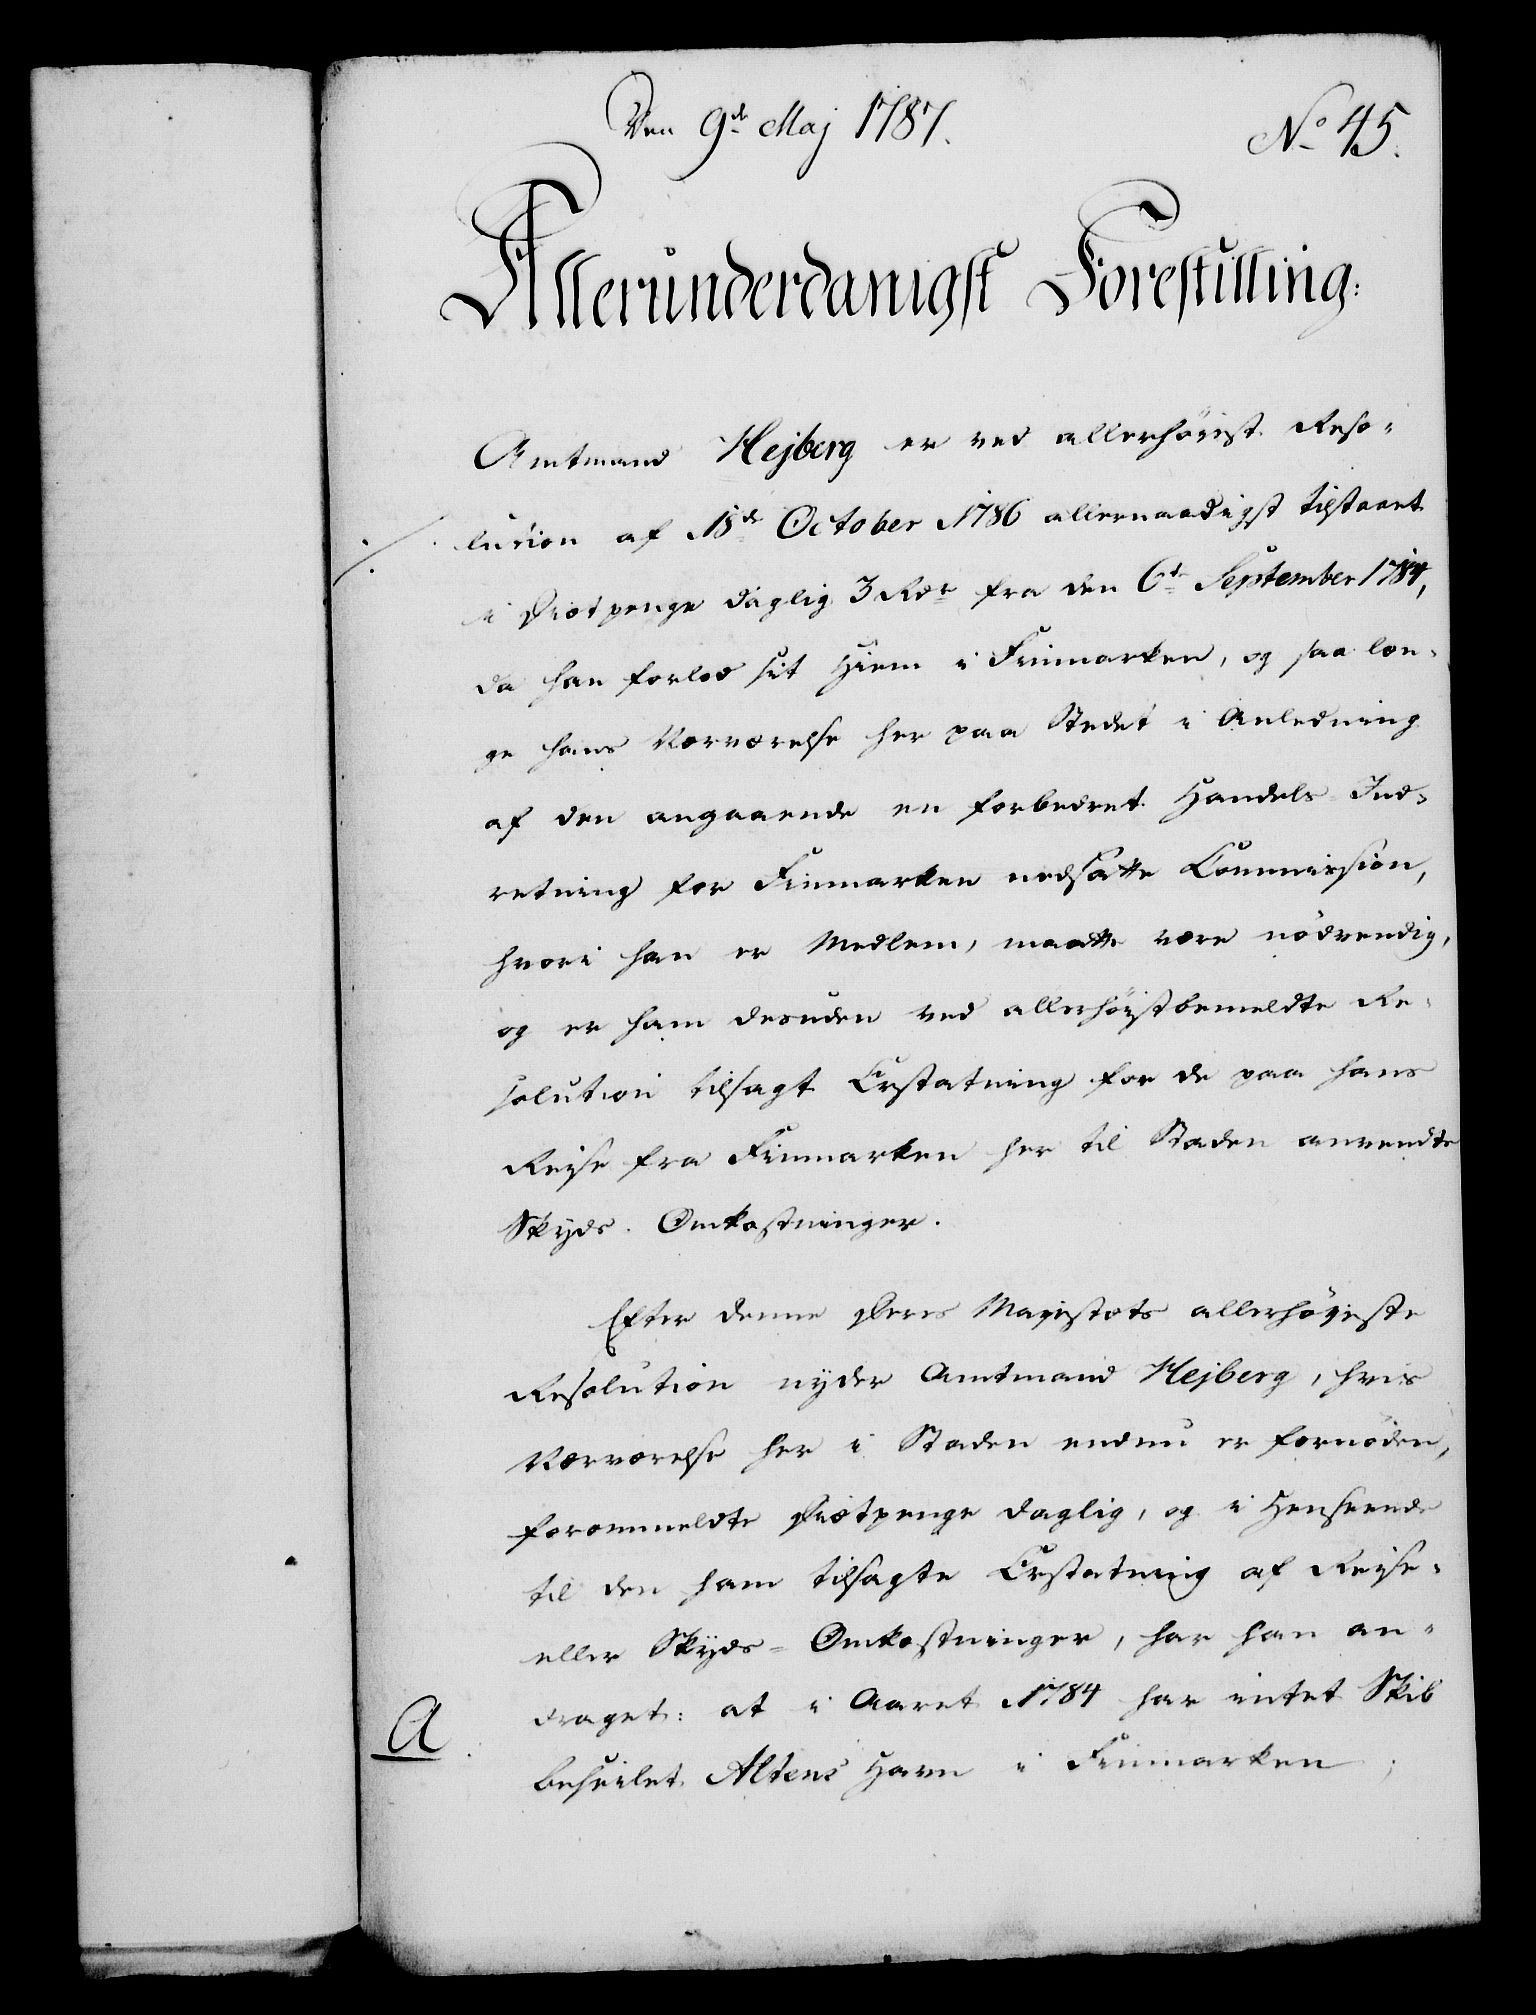 Den 9de Maj 1787.
No 45.
Allerunderdanigst Forestilling:
Amtmand Hejberg er ved allerhöiest Reso-
lution af 18de October 1786 allernaadigst tilstaaet
i Diætpenge daglig 3 Rdr fra den 6te September 1784,
da han forlod sit Hiem i Finmarken, og saa læn-
ge hans Nærværelse her paa Stedet i Anledning
af den angaaende en forbedret Handels-Ind-
retning for Finmarken nedsatte Commission,
hvori han er Medlem, maatte være nödvendig,
og er ham desuden ved allerhöistbemeldte Re-
solution tilsagt Erstatning for de paa hans
Reise fra Finmarken her til Staden anvendte
Skyds-Omkostninger.
Efter denne Deres Majestæts allerhöjeste
Resolution nyder Amtmand Hejberg, hvis
Nærværelse her i Staden endnu er fornöden,
forommeldte Diætpenge daglig, og i Henseende
til den ham tilsagte Erstatning af Reise-
eller Skyds-Omkostninger, har han an-
draget: at i Aaret 1784 har intet Skib
A
beseilet Altens Havn i Finmarken;